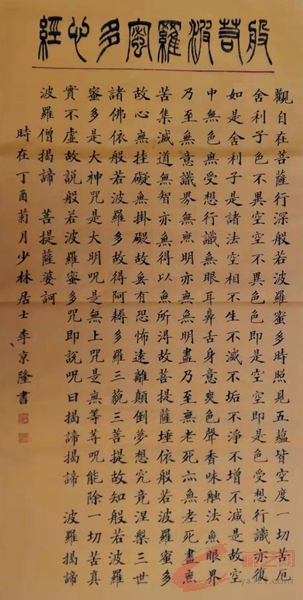 般若波羅蜜多心經
觀自在菩薩行深般若波羅蜜多時照見五蘊皆空度一切苦厄
舍利子色不異空空不異色色即是空空即是色受想行識亦復
如是舍利子是諸法空相不生不滅不垢不淨不增不減是故空
中無色無受想行識無眼耳鼻舌身意無色聲香味觸法無眼界
乃至無意識界無無明亦無無明盡乃至無老死亦無老死盡無
苦集滅道無智亦無得以無所得故菩提薩埵依般若波羅蜜多
故心無挂礙無掛礙故無有恐怖遠離顛倒夢想究竟涅槃三世
諸佛依般若波羅蜜多故得阿耨多羅三藐三菩提故知般若波羅
蜜多是大神咒是大明咒是無上咒是無等等咒能除一切苦真
實不虛故說般若波羅蜜多咒即說呪曰揭諦揭諦 波羅揭諦
波羅僧揭諦 菩提薩婆訶
時在丁酉菊月少林居士李京隆書